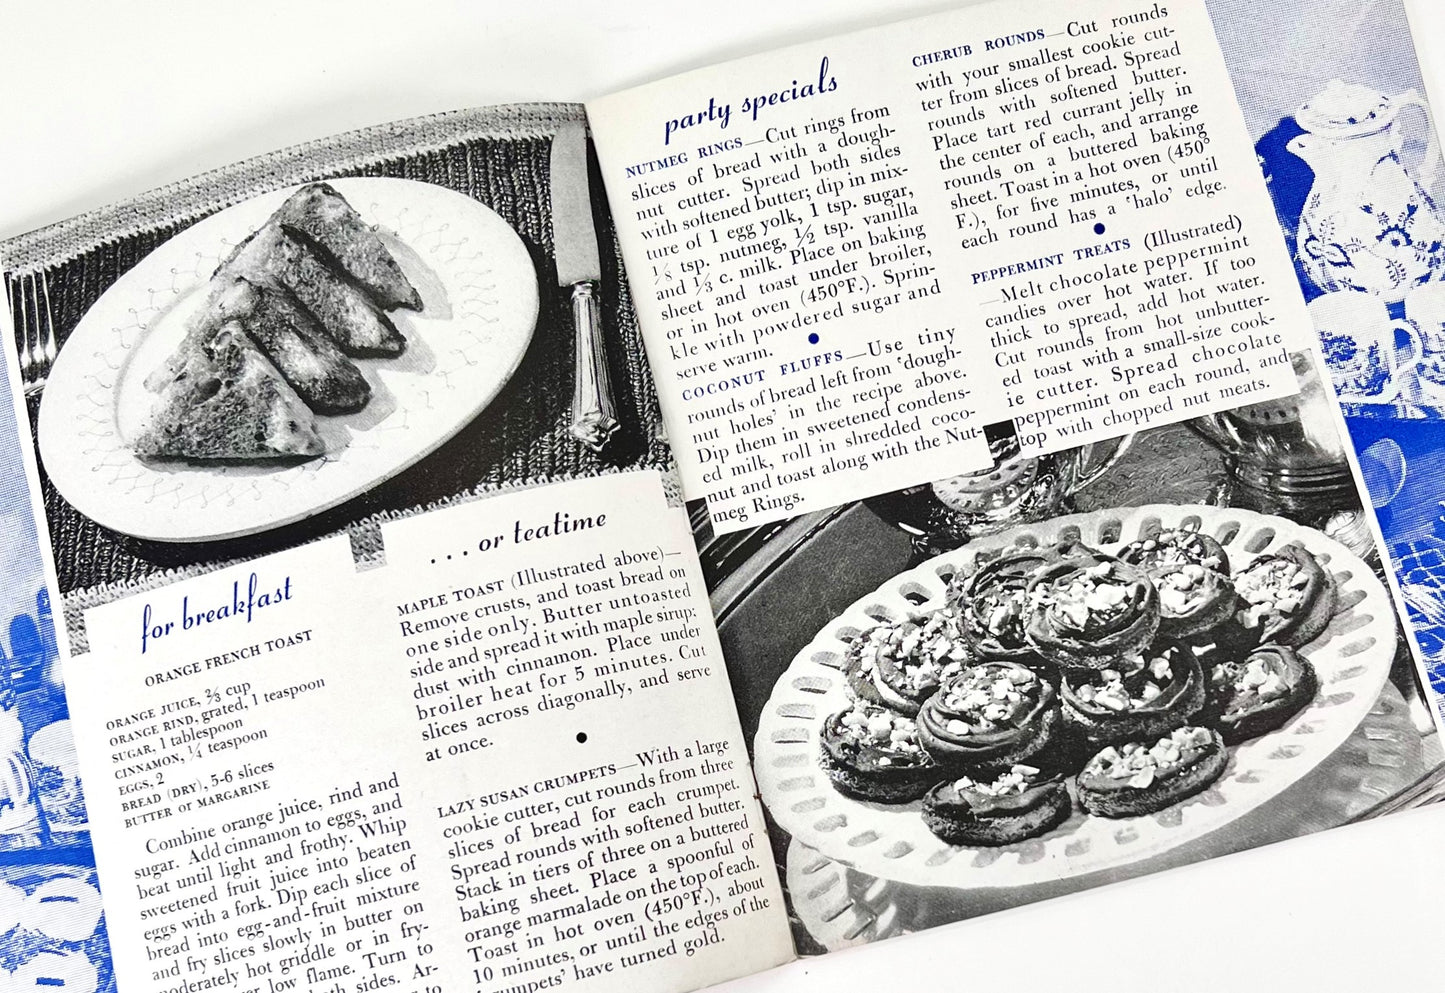 for breakfast
ORANGE FRENCH TOAST
ORANGE JUICE, ⅔ cup
ORANGE RIND, grated, 1 teaspoon
SUGAR, 1 tablespoon
CINNAMON, ¼ teaspoon
EGGS, 2
BREAD (DRY), 5-6 slices
BUTTER or MARGARINE
Combine orange juice, rind and
sugar. Add cinnamon to eggs, and
beat until light and frothy. Whip
sweetened fruit juice into beaten
eggs with a fork. Dip each slice of
bread into egg-and-fruit mixture
and fry slices slowly in butter on
moderately hot griddle or in fry-
low flame. Turn to
sides. Ar-
to
. . . or teatime
MAPLE TOAST (Illustrated above)—
Remove crusts, and toast bread on
one side only. Butter untoasted
side and spread it with maple sirup;
dust with cinnamon. Place under
broiler heat for 5 minutes. Cut
slices across diagonally, and serve
at once.
LAZY SUSAN CRUMPETS—With a large
cookie cutter, cut rounds from three
slices of bread for each crumpet.
Spread rounds with softened butter.
Stack in tiers of three on a buttered
baking sheet. Place a spoonful of
orange marmalade on the top of each.
Toast in hot oven (450°F.), about
10 minutes, or until the edges of the
'crumpets' have turned gold.
party specials
NUTMEG RINGS—Cut rings from
slices of bread with a dough-
nut cutter. Spread both sides
with softened butter; dip in mix-
ture of 1 egg yolk, 1 tsp. sugar,
⅛ tsp. nutmeg, ½ tsp. vanilla
and ⅓ c. milk. Place on baking
sheet and toast under broiler,
or in hot oven (450°F.). Sprin-
kle with powdered sugar and
serve warm.
COCONUT FLUFFS—Use tiny
rounds of bread left from 'dough-
nut holes' in the recipe above.
Dip them in sweetened condens-
ed milk, roll in shredded coco-
nut and toast along with the Nut-
meg Rings.
CHERUB ROUNDS—Cut rounds
with your smallest cookie cut-
ter from slices of bread. Spread
rounds with softened butter.
Place tart red currant jelly in
the center of each, and arrange
rounds on a buttered baking
sheet. Toast in a hot oven (450°
F.), for five minutes, or until
each round has a 'halo' edge.
PEPPERMINT TREATS (Illustrated)
—Melt chocolate peppermint
candies over hot water. If too
thick to spread, add hot water.
Cut rounds from hot unbutter-
ed toast with a small-size cook-
ie cutter. Spread chocolate
peppermint on each round, and
top with chopped nut meats.